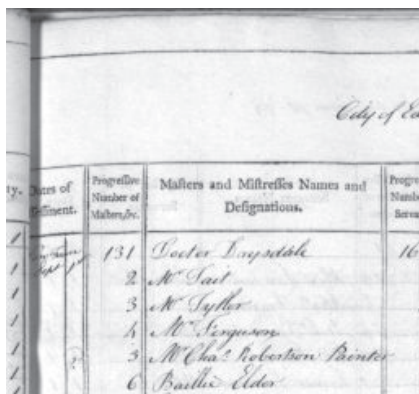 City of Ed
ty.
Dates of
Progressive
Number of
Masters, &c.
Masters and Mistresses Names and
Designations.
Progre
Numbe
Serva
131 Doctor Drysdale 16
2 Mr Tait
3 Mr Tytler
4 Mr Ferguson
5 Mr Chas. Robertson Painter
6 Baillie Elder